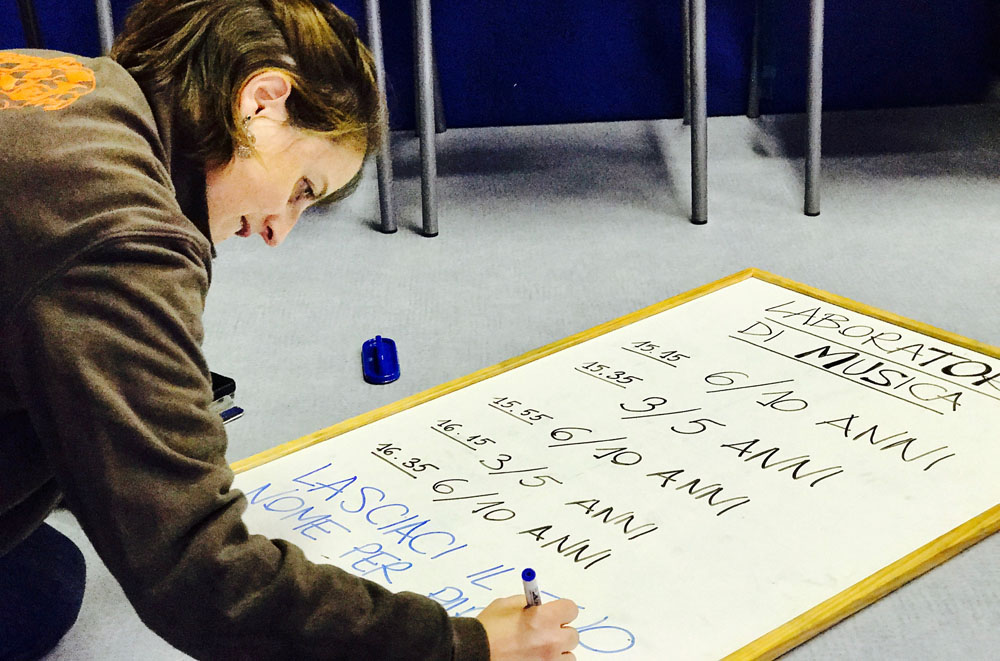 LABORATOR
DI MUSICA
15.15 6/10 ANNI
15.35 3/5 ANNI
15.55 6/10 ANNI
16.15 3/5 ANNI
16.35 6/10 ANNI
LASCIACI IL TUO
NOME PER